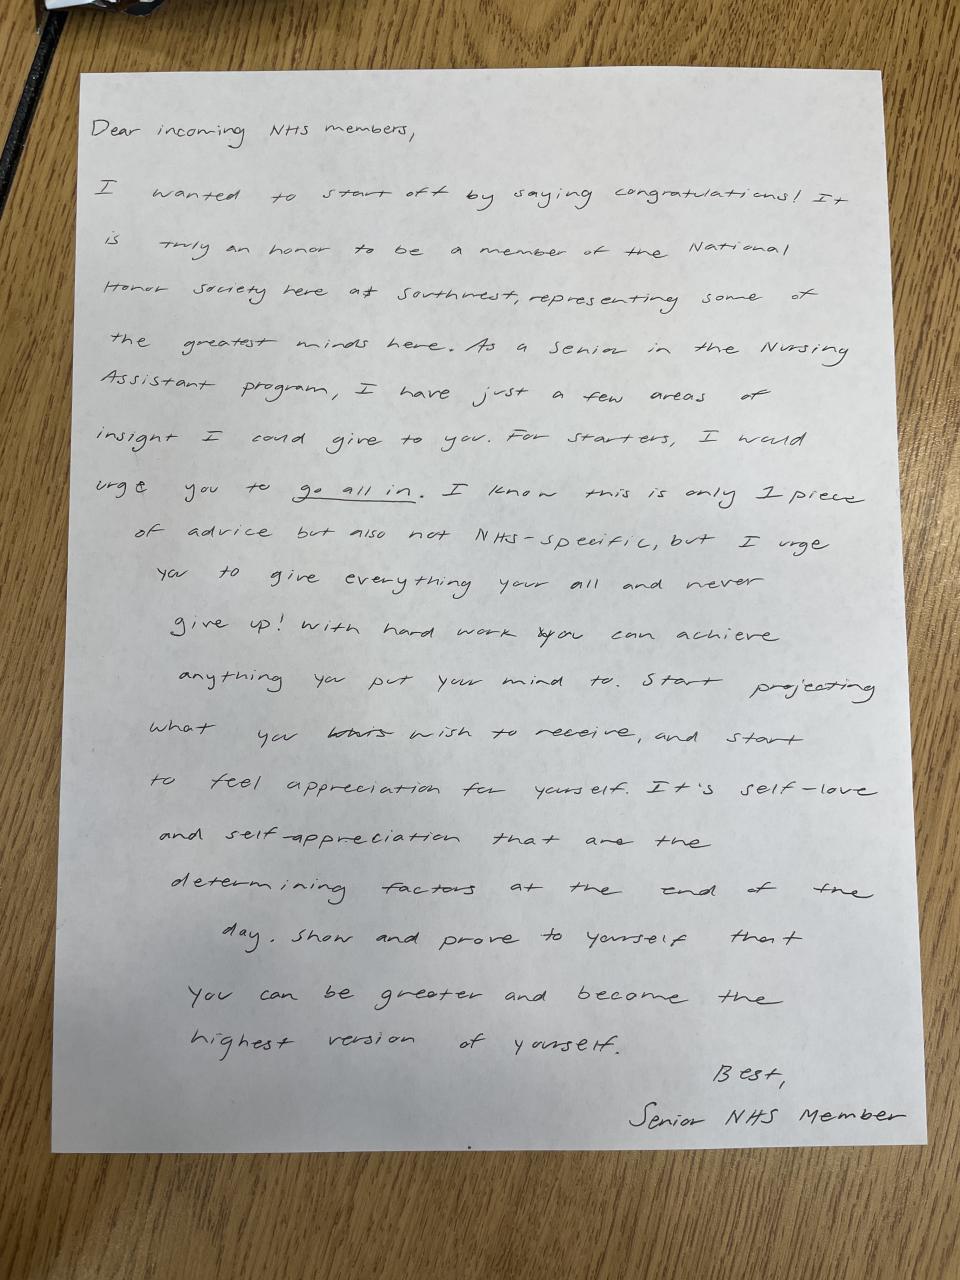 Dear incoming NHS members,
I wanted to start off by saying congratulations! It
is truly an honor to be a member of the National
Honor Society here at Southwest, representing some of
the greatest minds here. As a senior in the Nursing
Assistant program, I have just a few areas of
insight I could give to you. For starters, I would
urge you to go all in. I know this is only 1 piece
of advice but also not NHS-specific, but I urge
you to give everything your all and never
give up! With hard work you can achieve
anything you put your mind to. Start projecting
what you wish to receive, and start
to feel appreciation for yourself. It's self-love
and self-appreciation that are the
determining factors at the end of the
day. Show and prove to yourself that
you can be greater and become the
highest version of yourself.
Best,
Senior NHS Member